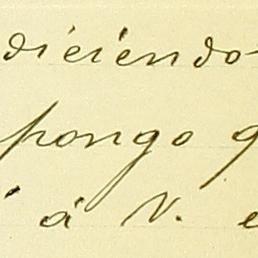 diciendo
pongo q
á V. e